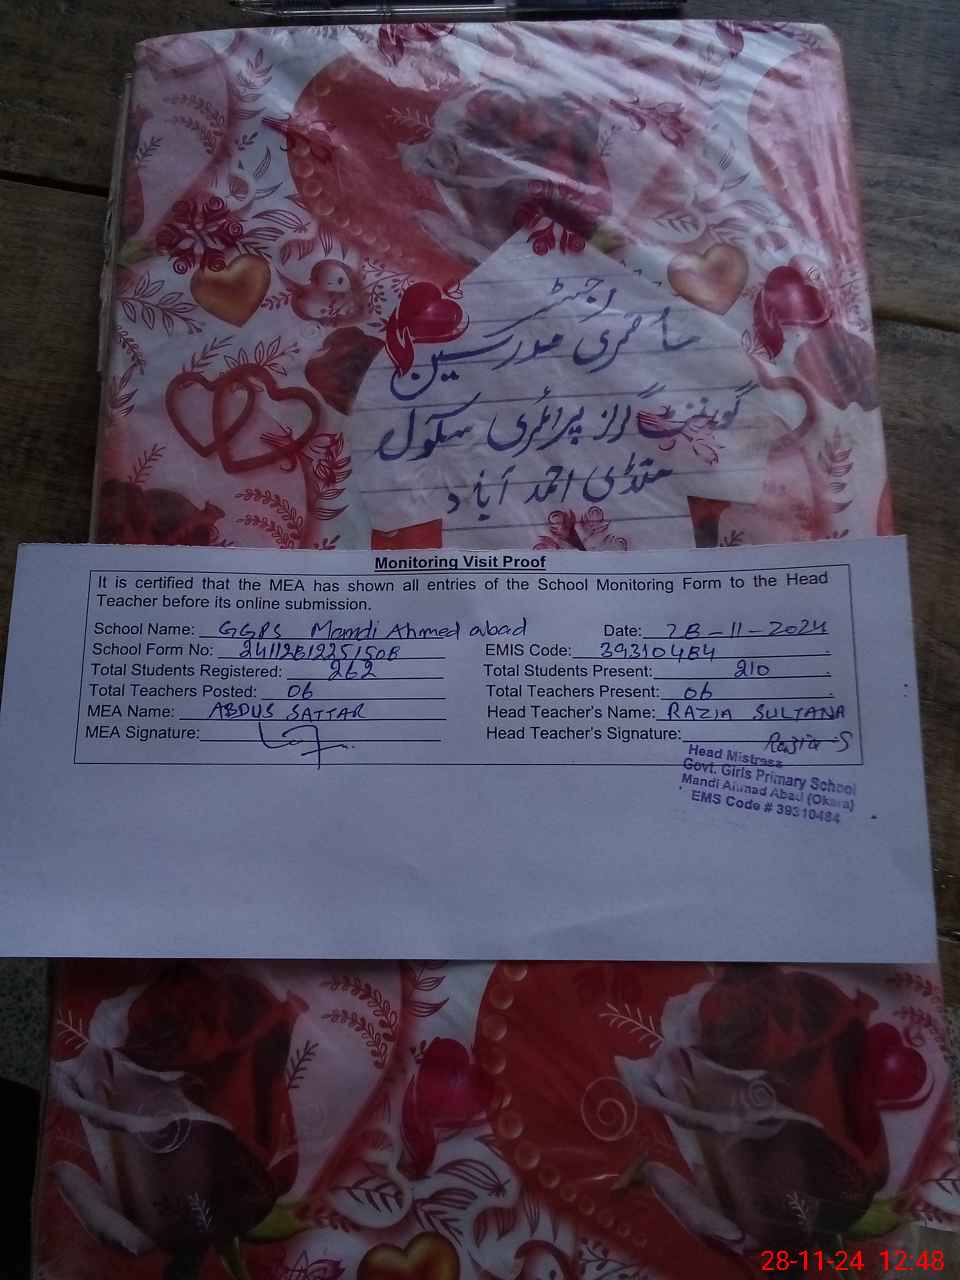 رجسٹر
حاضری مدرسین
گورنمنٹ گرلز پرائمری سکول
منڈی احمد آباد
Monitoring Visit Proof
It is certified that the MEA has shown all entries of the School Monitoring Form to the Head
Teacher before its online submission.
School Name: GGPS Mandi Ahmed abad Date: 28-11-2024
School Form No: 24112812251508 EMIS Code: 39310484
Total Students Registered: 262 Total Students Present: 210
Total Teachers Posted: 06 Total Teachers Present: 06
MEA Name: ABDUS SATTAR Head Teacher's Name: RAZIA SULTANA
MEA Signature: Head Teacher's Signature: Razia S
Head Mistress
Govt. Girls Primary School
Mandi Ahmad Abad (Okara)
EMS Code # 39310484
28-11-24 12:48